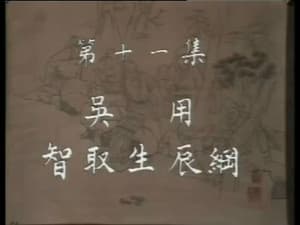 第十一集
吳用
智取生辰綱